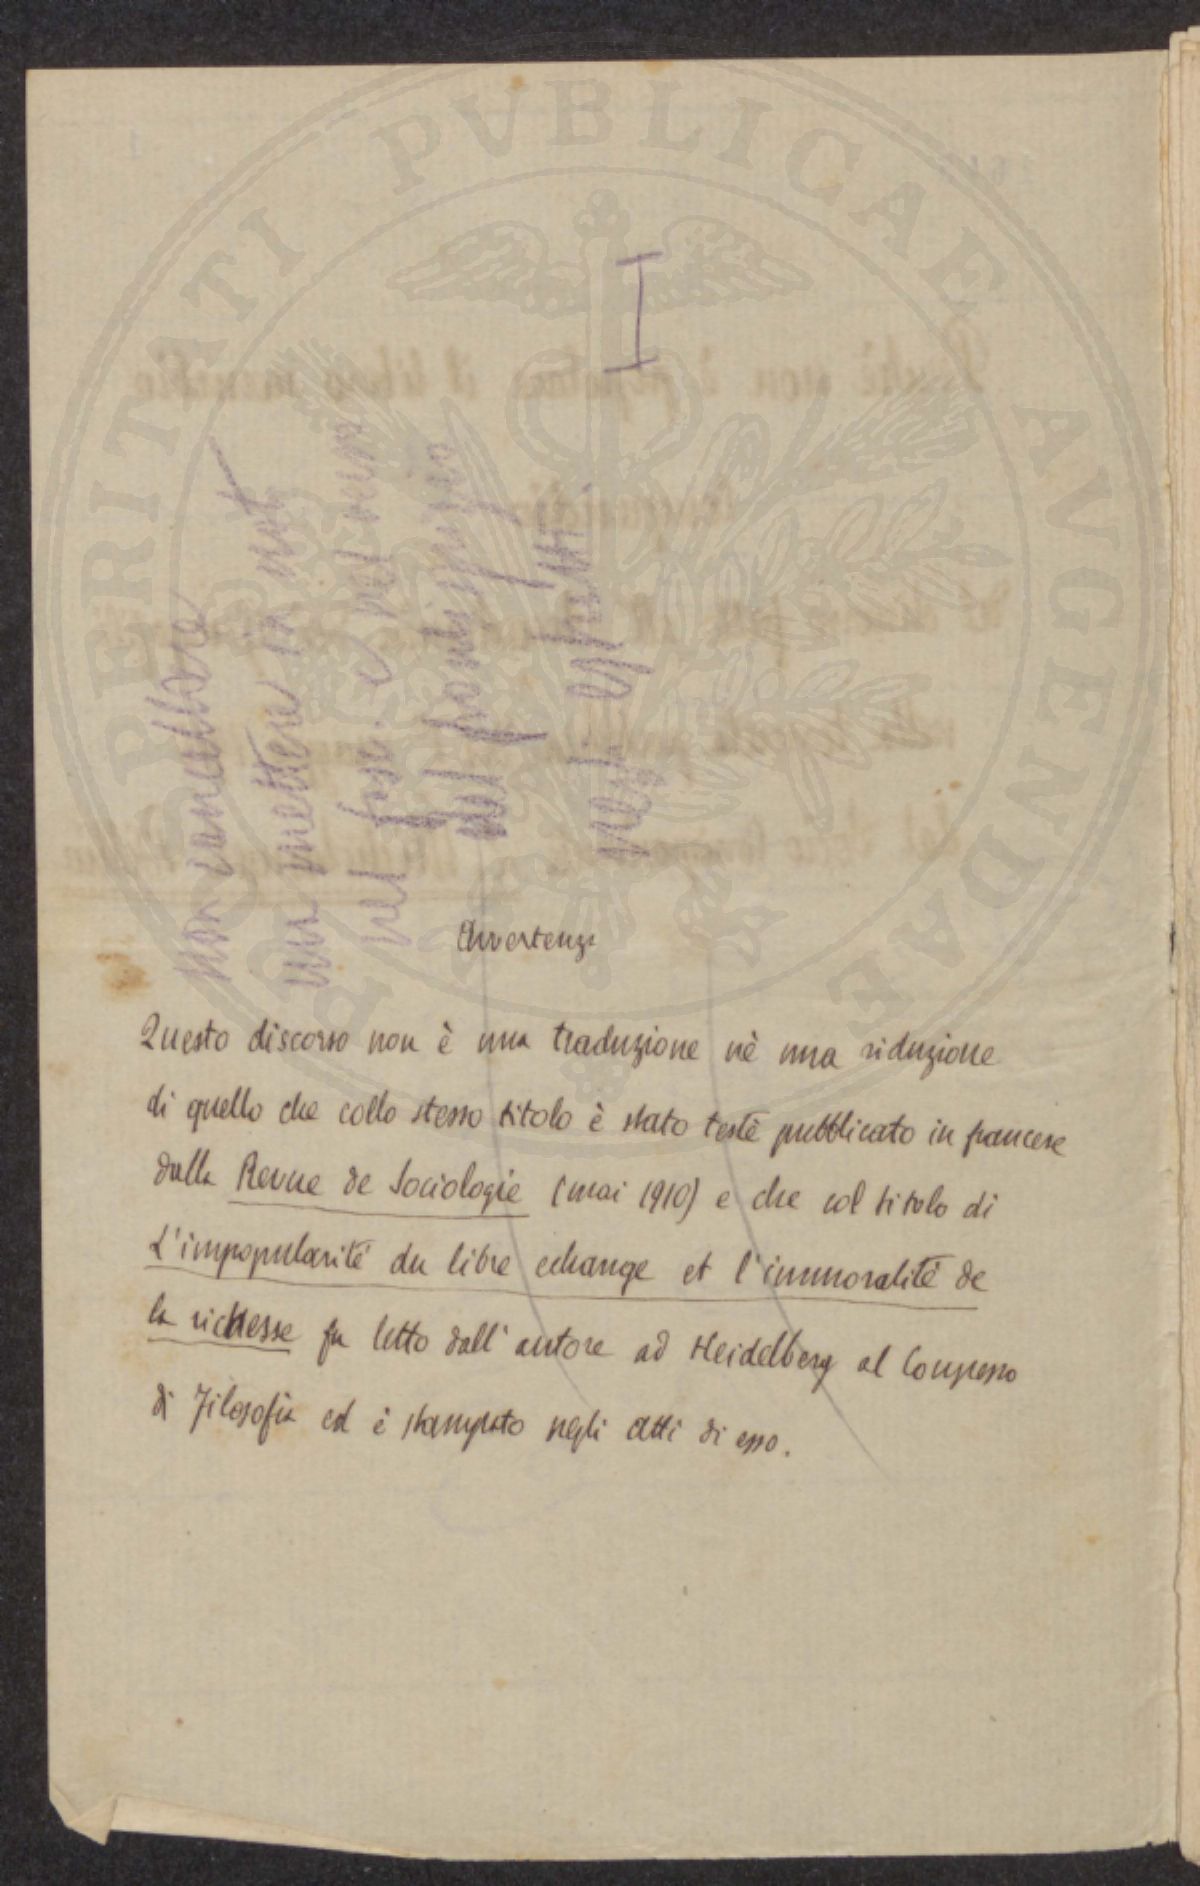 PROSPERITATI PVBLICAE AVGENDAE
I
non cancellare
ma mettere in not
nel fasc. e nel
nel frontispizio
negli estratti
Avvertenza
Questo discorso non è una traduzione nè una riduzione
di quello che collo stesso titolo è stato testè pubblicato in francese
dalla Revue de Sociologie (mai 1910) e che col titolo di
L'impopularité du libre echange et l'immoralité de
la richesse fu letto dall'autore ad Heidelberg al Congresso
di Filosofia ed è stampato negli atti di esso.